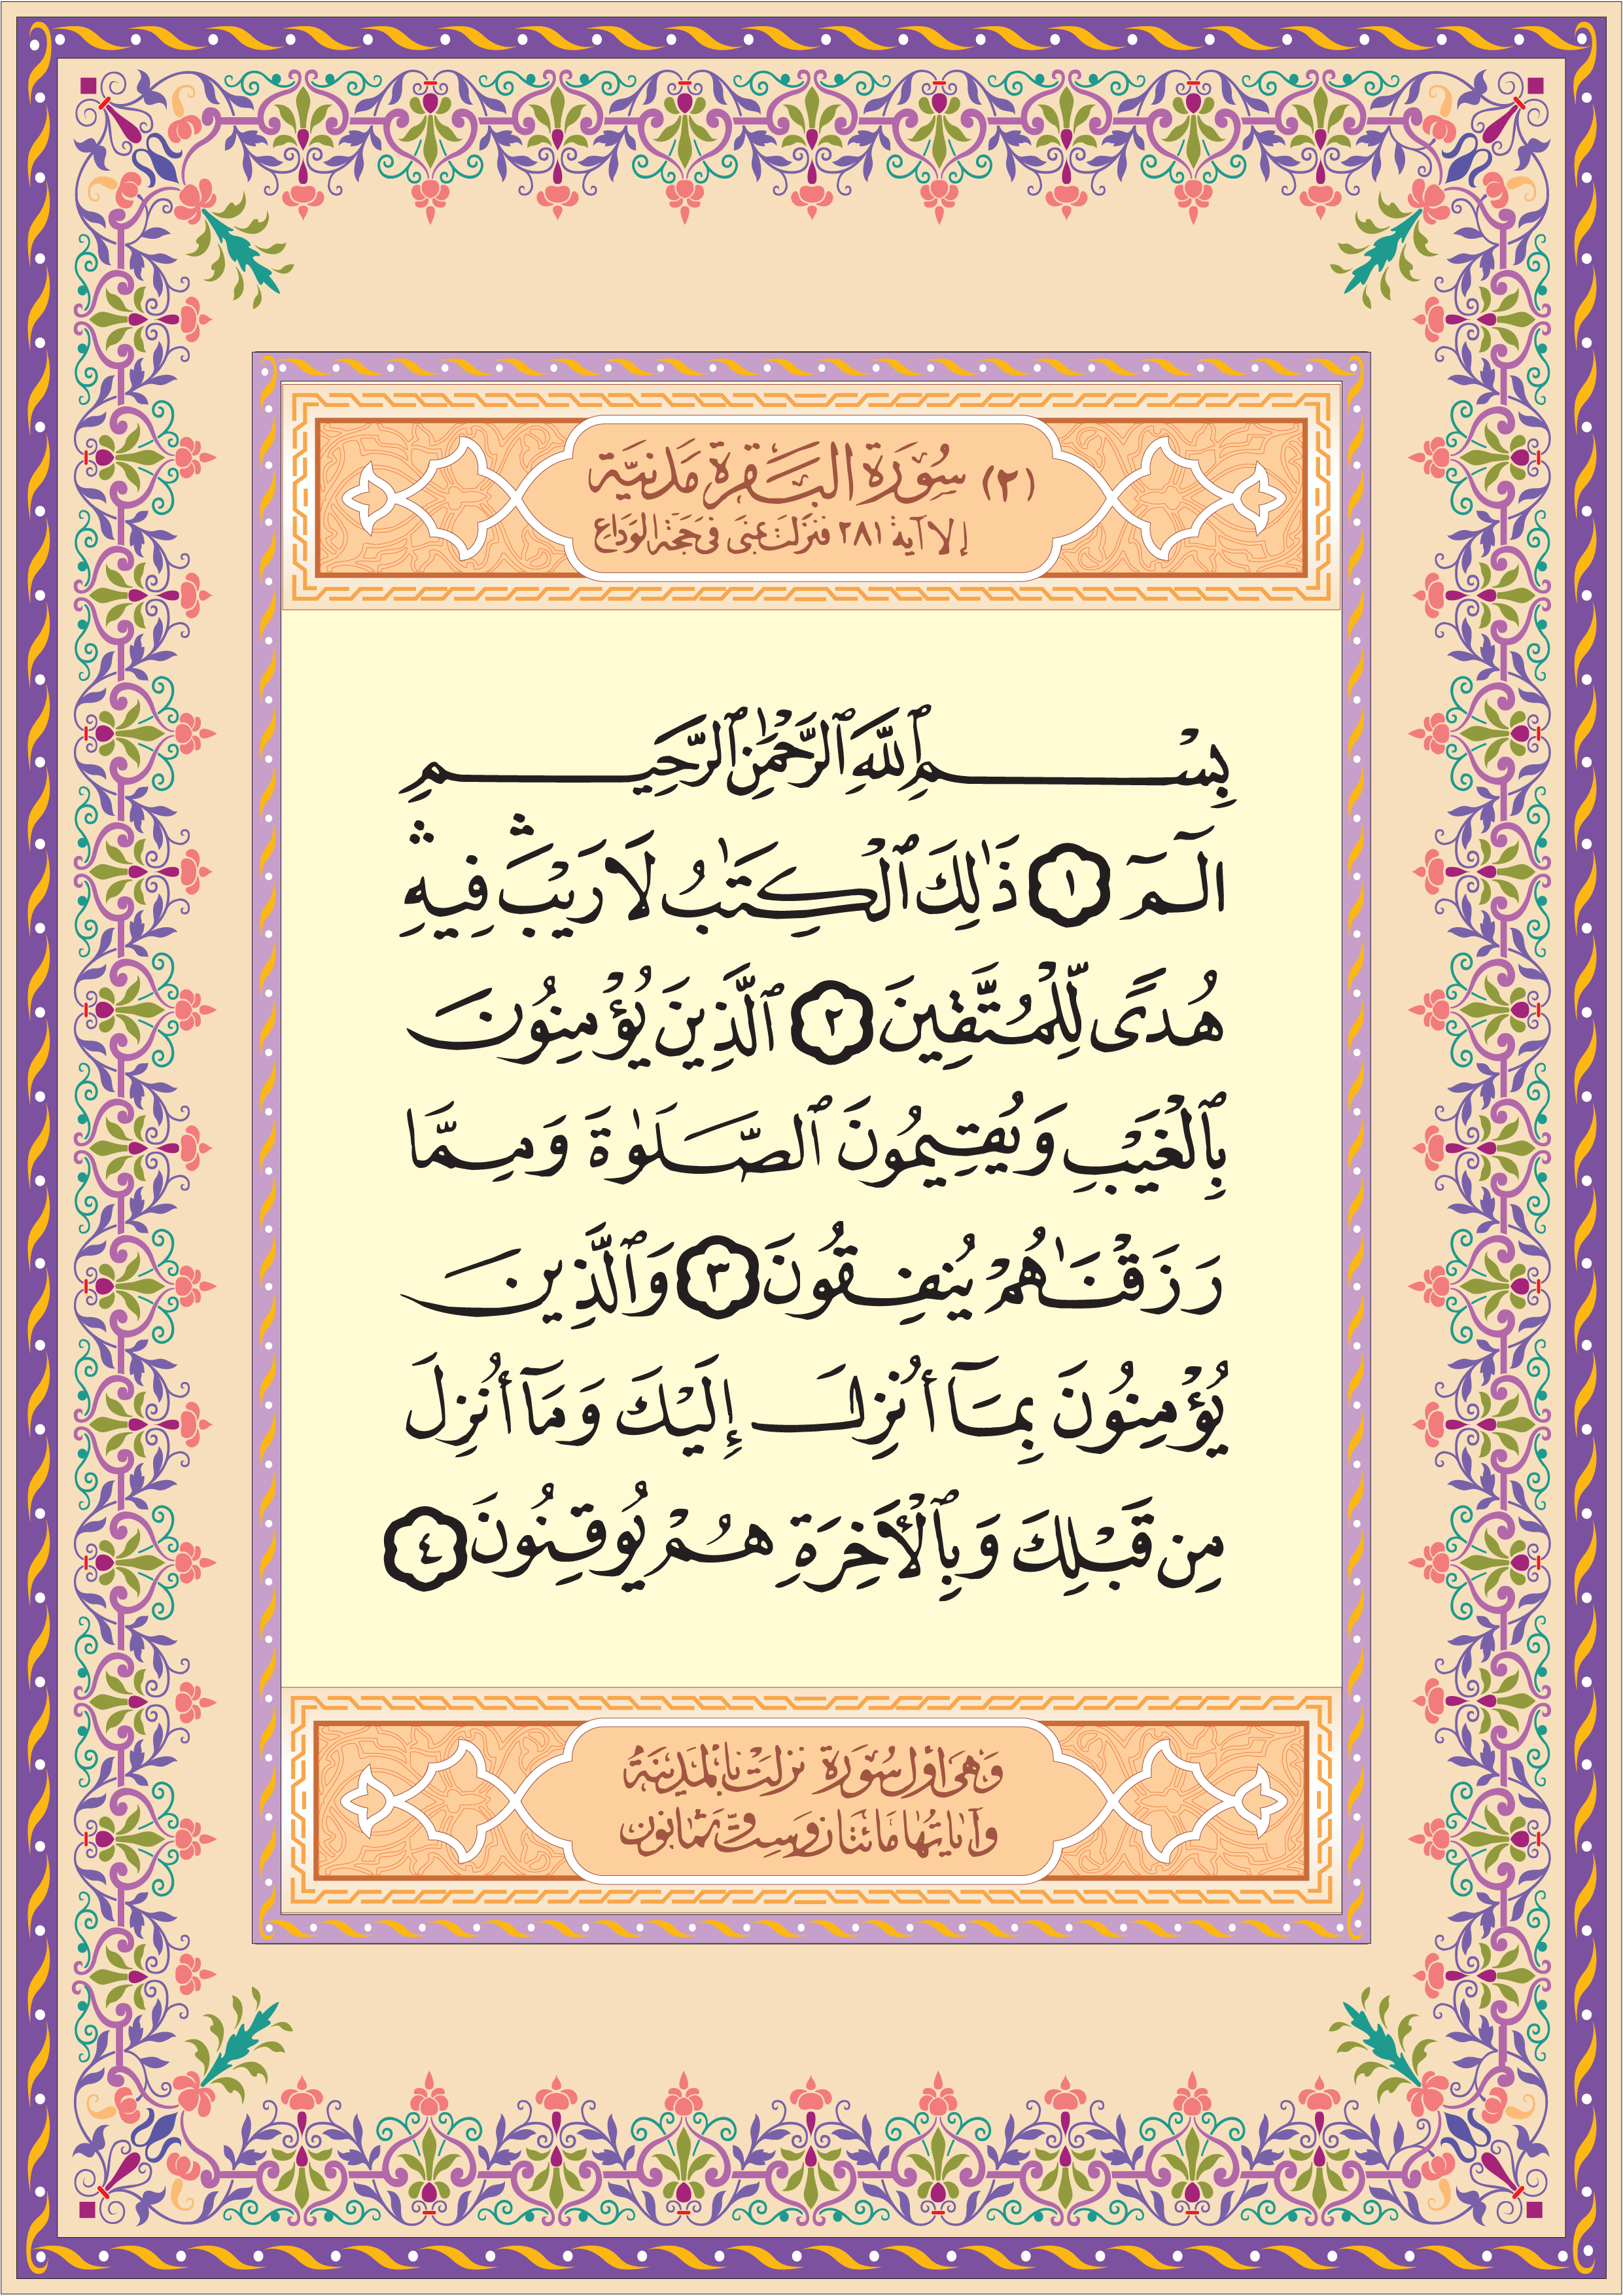 (٢) سُوْرَةُ الْبَقَرَةِ مَدَنِيَّة
إلا آية ٢٨١ فنزلت بمنى في حجة الوداع
بِسْمِ ٱللَّهِ ٱلرَّحْمَٰنِ ٱلرَّحِيمِ
الٓمٓ ١ ذَٰلِكَ ٱلْكِتَٰبُ لَا رَيْبَ ۛ فِيهِ ۛ
هُدًى لِّلْمُتَّقِينَ ٢ ٱلَّذِينَ يُؤْمِنُونَ
بِٱلْغَيْبِ وَيُقِيمُونَ ٱلصَّلَوٰةَ وَمِمَّا
رَزَقْنَٰهُمْ يُنفِقُونَ ٣ وَٱلَّذِينَ
يُؤْمِنُونَ بِمَآ أُنزِلَ إِلَيْكَ وَمَآ أُنزِلَ
مِن قَبْلِكَ وَبِٱلْأَخِرَةِ هُمْ يُوقِنُونَ ٤
وهي أول سورة نزلت بالمدينة
وآياتها مائتان وست وثمانون